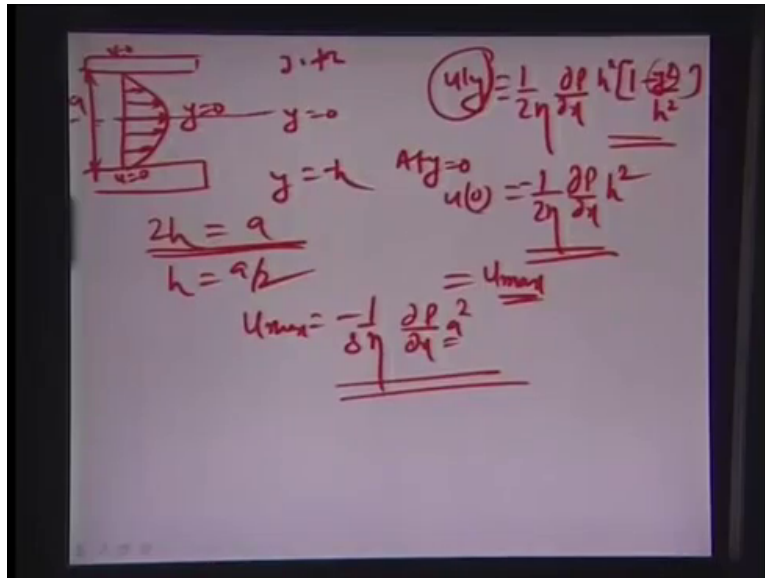 u=0
a
u=0
y=0
y=+h
y=0
y=-h
2h = a
h = a/2
u(y) = 1/2η ∂P/∂x h² [1 - y²/h²]
At y=0
u(0) = -1/2η ∂P/∂x h²
= umax
umax = -1/8η ∂P/∂x a²